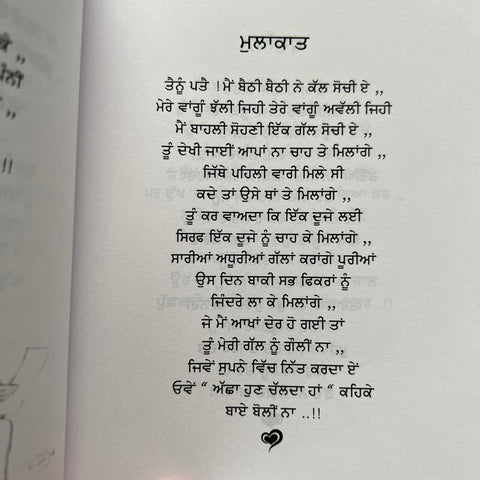 ਮੁਲਾਕਾਤ
ਤੈਨੂੰ ਪਤੈ !ਮੈਂ ਬੈਠੀ ਬੈਠੀ ਨੇ ਕੱਲ ਸੋਚੀ ਏ ,,
ਮੇਰੇ ਵਾਂਗੂੰ ਝੱਲੀ ਜਿਹੀ ਤੇਰੇ ਵਾਂਗੂੰ ਅਵੱਲੀ ਜਿਹੀ
ਮੈਂ ਬਾਹਲੀ ਸੋਹਣੀ ਇੱਕ ਗੱਲ ਸੋਚੀ ਏ ,,
ਤੂੰ ਦੇਖੀ ਜਾਈਂ ਆਪਾਂ ਨਾ ਚਾਹ ਤੇ ਮਿਲਾਂਗੇ ,,
ਜਿੱਥੇ ਪਹਿਲੀ ਵਾਰੀ ਮਿਲੇ ਸੀ
ਕਦੇ ਤਾਂ ਉਸੇ ਥਾਂ ਤੇ ਮਿਲਾਂਗੇ ,,
ਤੂੰ ਕਰ ਵਾਅਦਾ ਕਿ ਇੱਕ ਦੂਜੇ ਲਈ
ਸਿਰਫ ਇੱਕ ਦੂਜੇ ਨੂੰ ਚਾਹ ਕੇ ਮਿਲਾਂਗੇ ,,
ਸਾਰੀਆਂ ਅਧੂਰੀਆਂ ਗੱਲਾਂ ਕਰਾਂਗੇ ਪੂਰੀਆਂ
ਉਸ ਦਿਨ ਬਾਕੀ ਸਭ ਫਿਕਰਾਂ ਨੂੰ
ਜਿੰਦਰੇ ਲਾ ਕੇ ਮਿਲਾਂਗੇ ,,
ਜੇ ਮੈਂ ਆਖਾਂ ਦੇਰ ਹੋ ਗਈ ਤਾਂ
ਤੂੰ ਮੇਰੀ ਗੱਲ ਨੂੰ ਗੌਲੀਂ ਨਾ ,,
ਜਿਵੇਂ ਸੁਪਨੇ ਵਿੱਚ ਨਿੱਤ ਕਰਦਾ ਏਂ
ਓਵੇਂ “ ਅੱਛਾ ਹੁਣ ਚੱਲਦਾ ਹਾਂ “ ਕਹਿਕੇ
ਬਾਏ ਬੋਲੀਂ ਨਾ ..!!